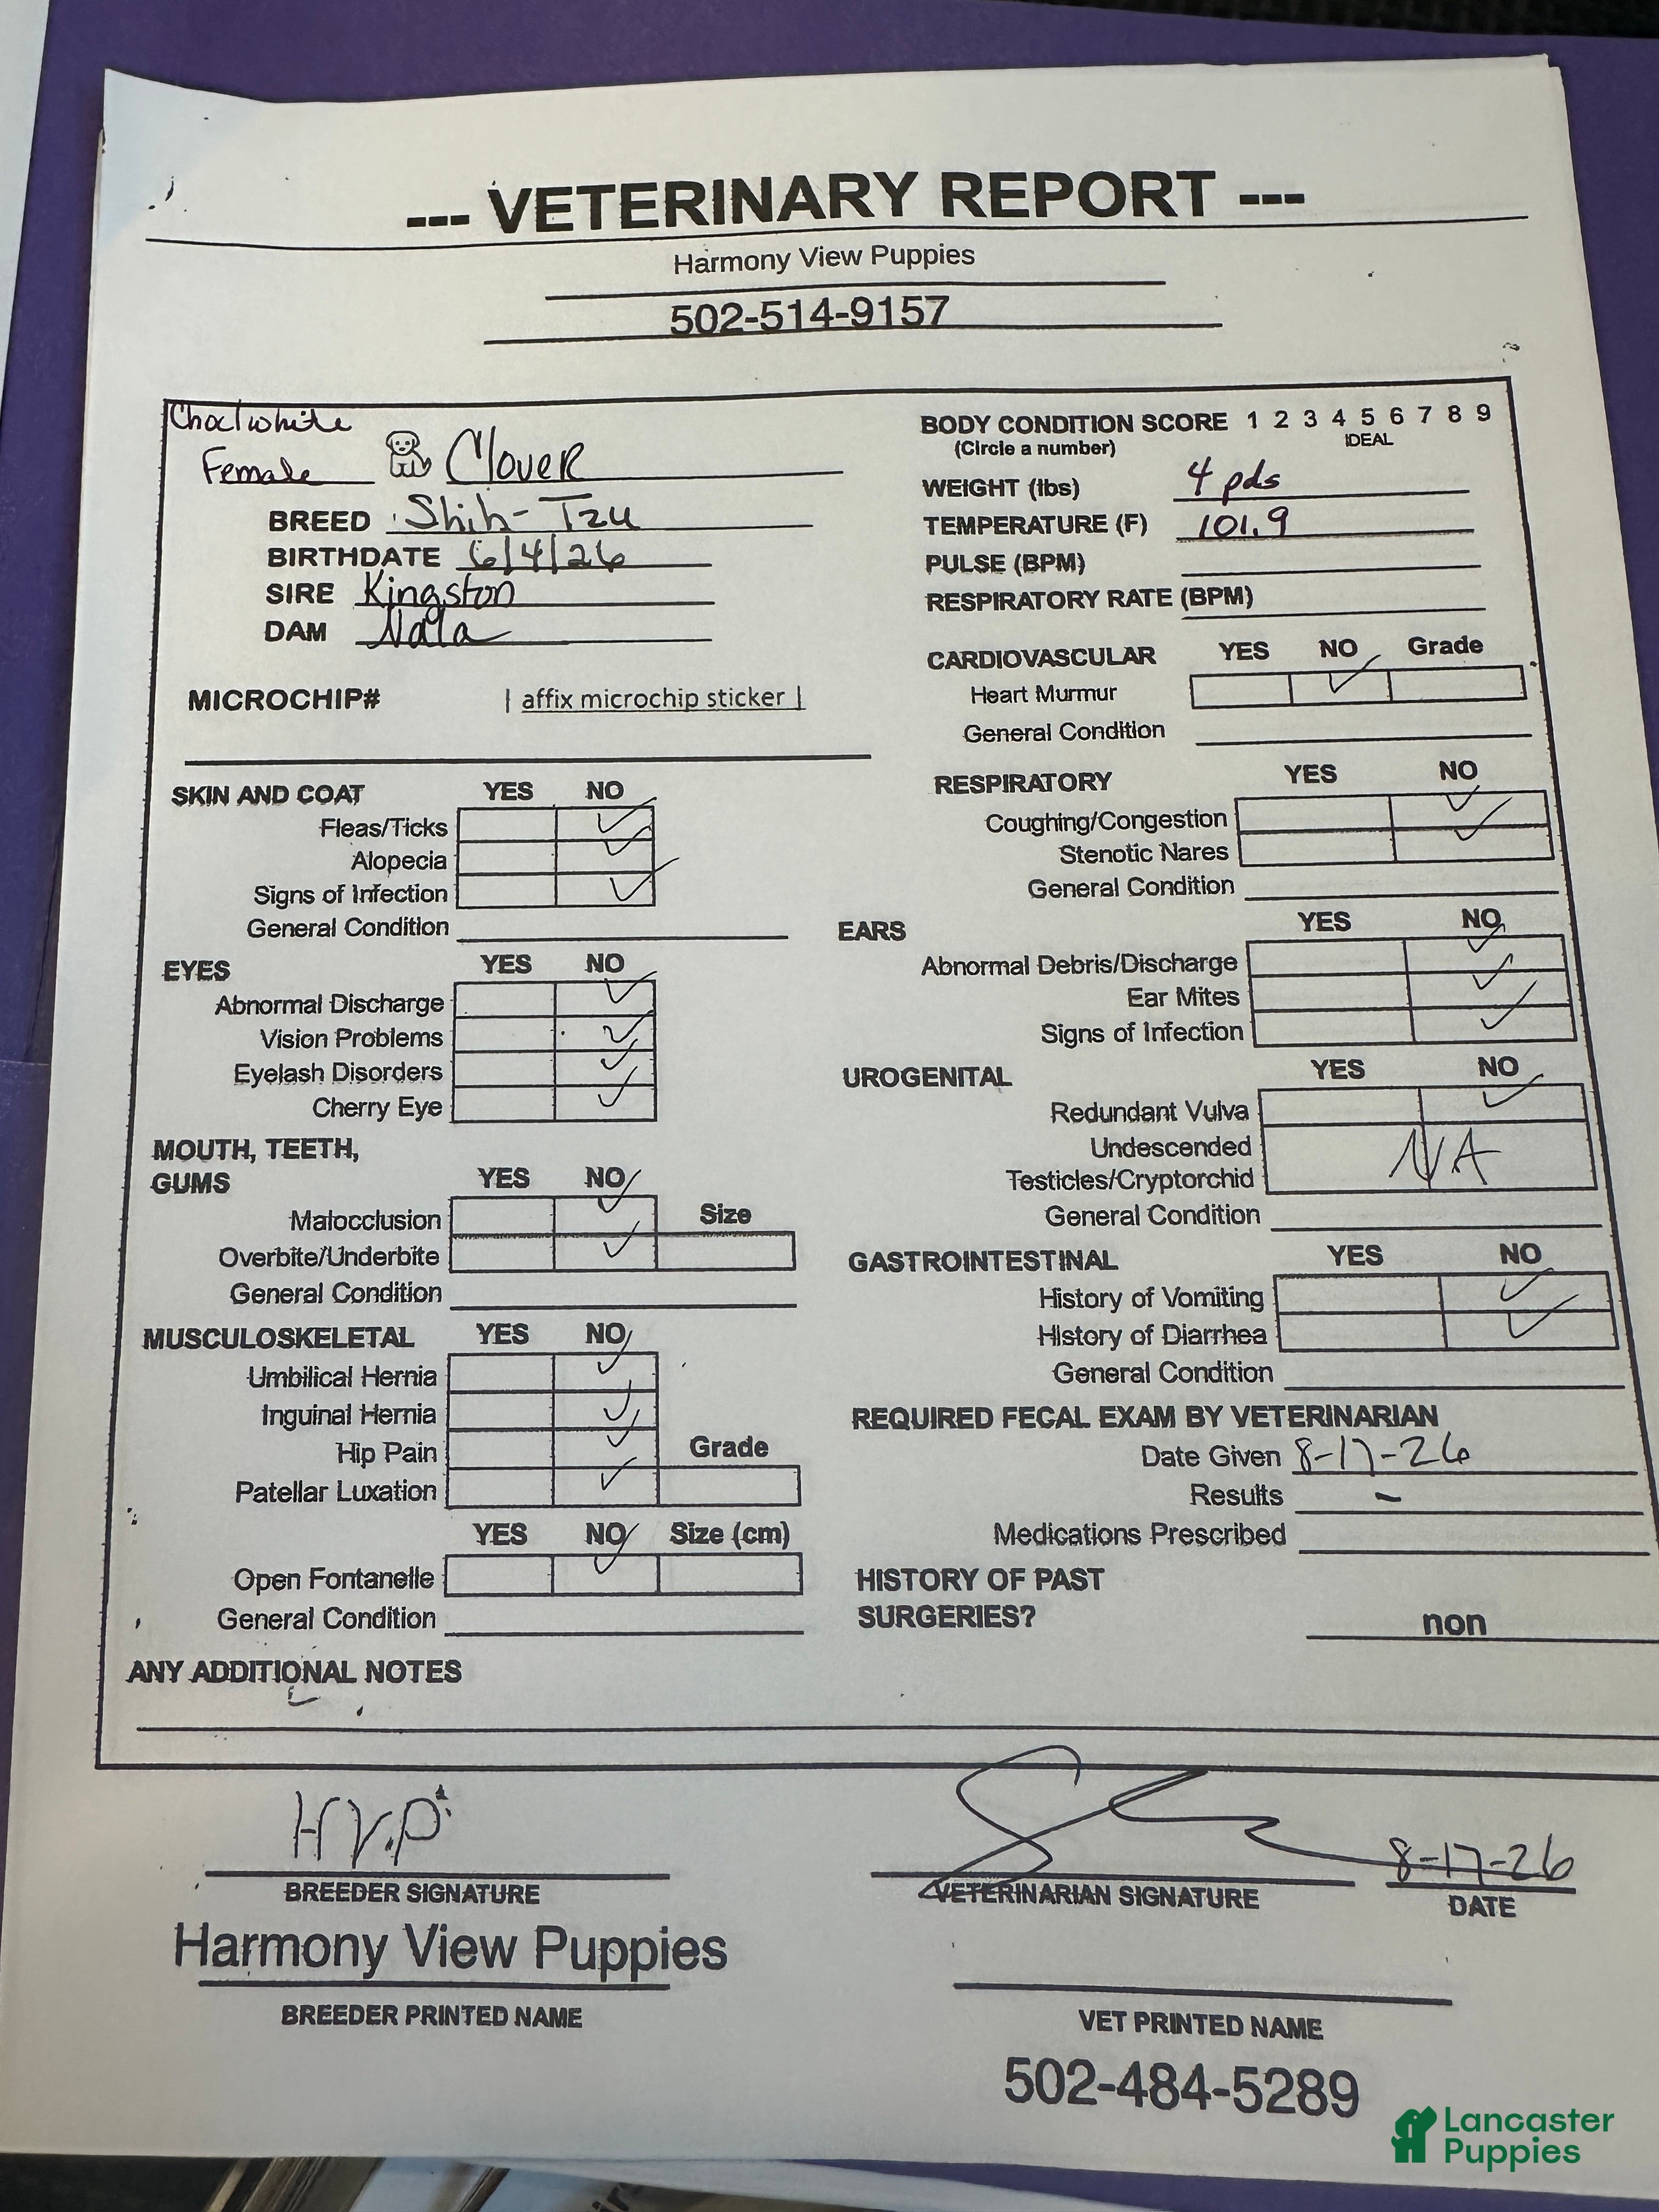 --- VETERINARY REPORT ---
Harmony View Puppies
502-514-9157
Choc/white
Female Clover
BREED Shih-Tzu
BIRTHDATE 6/4/26
SIRE Kingston
DAM Nala
MICROCHIP# | affix microchip sticker |
SKIN AND COAT YES NO
Fleas/Ticks
Alopecia
Signs of Infection
General Condition
EYES YES NO
Abnormal Discharge
Vision Problems
Eyelash Disorders
Cherry Eye
MOUTH, TEETH,
GUMS YES NO
Malocclusion Size
Overbite/Underbite
General Condition
MUSCULOSKELETAL YES NO
Umbilical Hernia
Inguinal Hernia
Hip Pain Grade
Patellar Luxation
YES NO Size (cm)
Open Fontanelle
General Condition
ANY ADDITIONAL NOTES
BODY CONDITION SCORE 1 2 3 4 5 6 7 8 9
(Circle a number) IDEAL
WEIGHT (lbs) 4 pds
TEMPERATURE (F) 101.9
PULSE (BPM)
RESPIRATORY RATE (BPM)
CARDIOVASCULAR YES NO Grade
Heart Murmur
General Condition
RESPIRATORY YES NO
Coughing/Congestion
Stenotic Nares
General Condition
EARS YES NO
Abnormal Debris/Discharge
Ear Mites
Signs of Infection
UROGENITAL YES NO
Redundant Vulva
Undescended
Testicles/Cryptorchid N/A
General Condition
GASTROINTESTINAL YES NO
History of Vomiting
History of Diarrhea
General Condition
REQUIRED FECAL EXAM BY VETERINARIAN
Date Given 8-17-26
Results -
Medications Prescribed
HISTORY OF PAST
SURGERIES? non
H.V.P.
BREEDER SIGNATURE
Harmony View Puppies
BREEDER PRINTED NAME
VETERINARIAN SIGNATURE
8-17-26
DATE
VET PRINTED NAME
502-484-5289
Lancaster
Puppies